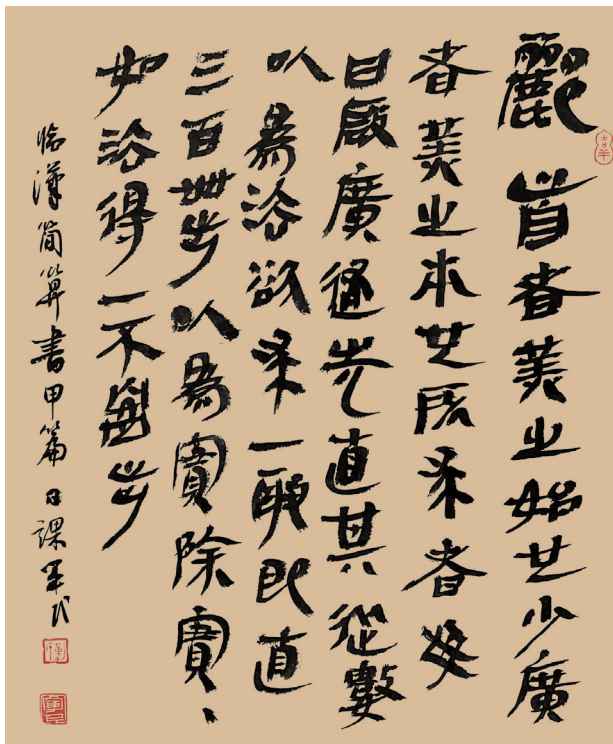 酈首者美之始也少廣
者美之市也所求者
曰啟廣步直其從數
以爲法欲求一畝即直
三百卌步以爲實除實、
如法得一不盈步
臨漢簡算書甲篇日課軍民